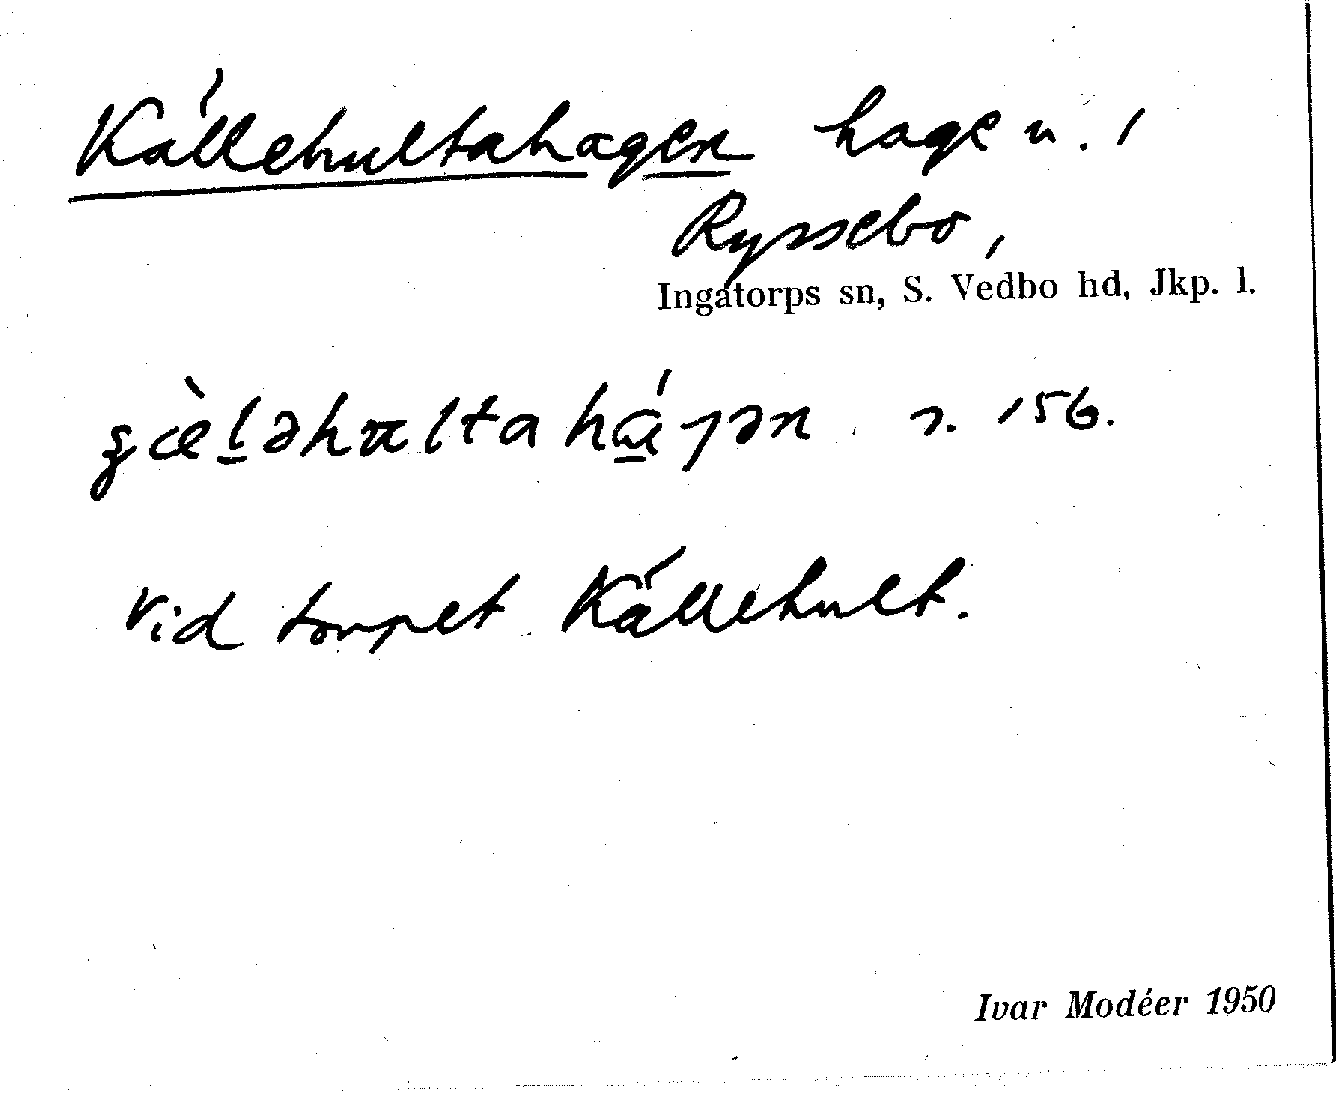 Källehultahagen hage u. 1
Ryssebo,
Ingatorps sn, S. Vedbo hd, Jkp. l.
156.
Vid torpet Källehult.
Ivar Modéer 1950